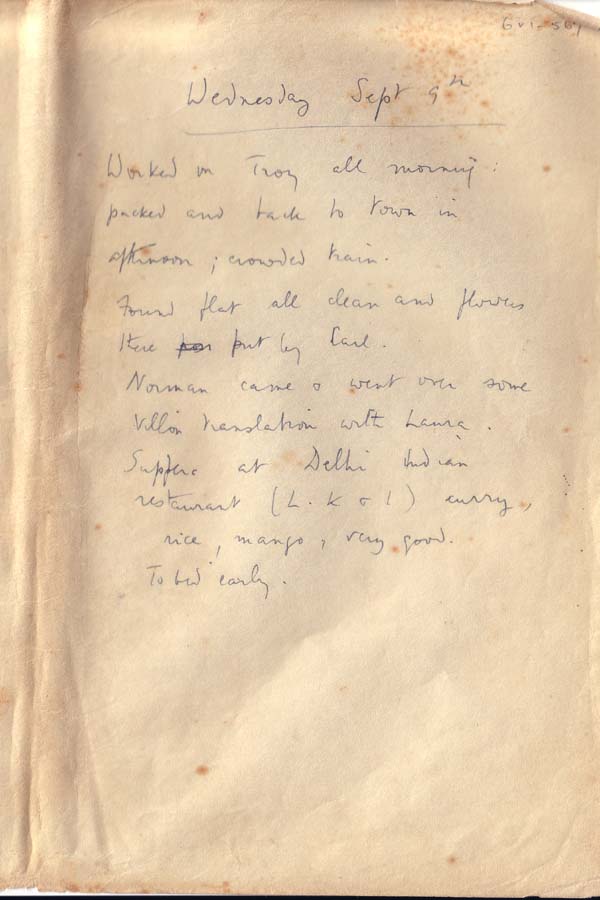 Wednesday Sept 9th
Worked on Troy all morning:
packed and back to town in
afternoon; crowded train.
Found flat all clean and flowers
there put by Karl.
Norman came & went over some
Villon translation with Laura.
Suppere at Delhi Indian
restaurant (L. K & I) curry,
rice, mango, very good.
To bed early.